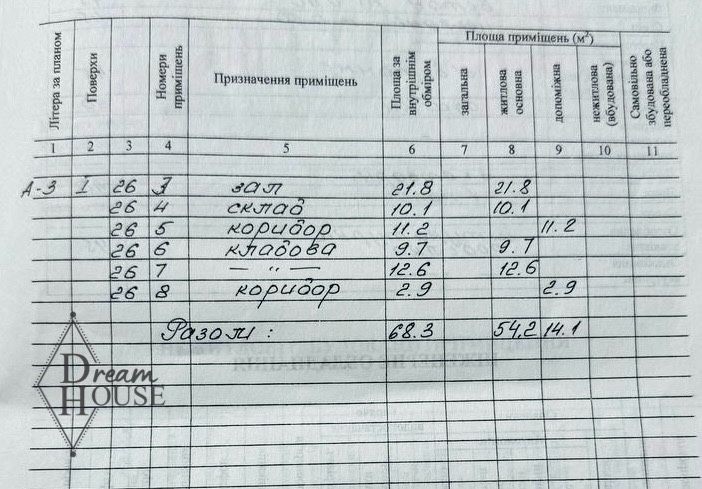 Літера за планом
Поверхи
Номери приміщень
Призначення приміщень
Площа за внутрішнім обміром
Площа приміщень (м²)
загальна
житлова основна
допоміжна
нежитлова (вбудована)
Самовільно збудована або переобладнена
1 2 3 4 5 6 7 8 9 10 11
А-3 I 26 3 зал 21.8 21.8
26 4 склад 10.1 10.1
26 5 коридор 11.2 11.2
26 6 кладова 9.7 9.7
26 7 — " — 12.6 12.6
26 8 коридор 2.9 2.9
Разом: 68.3 54,2 14.1
Dream
HOUSE